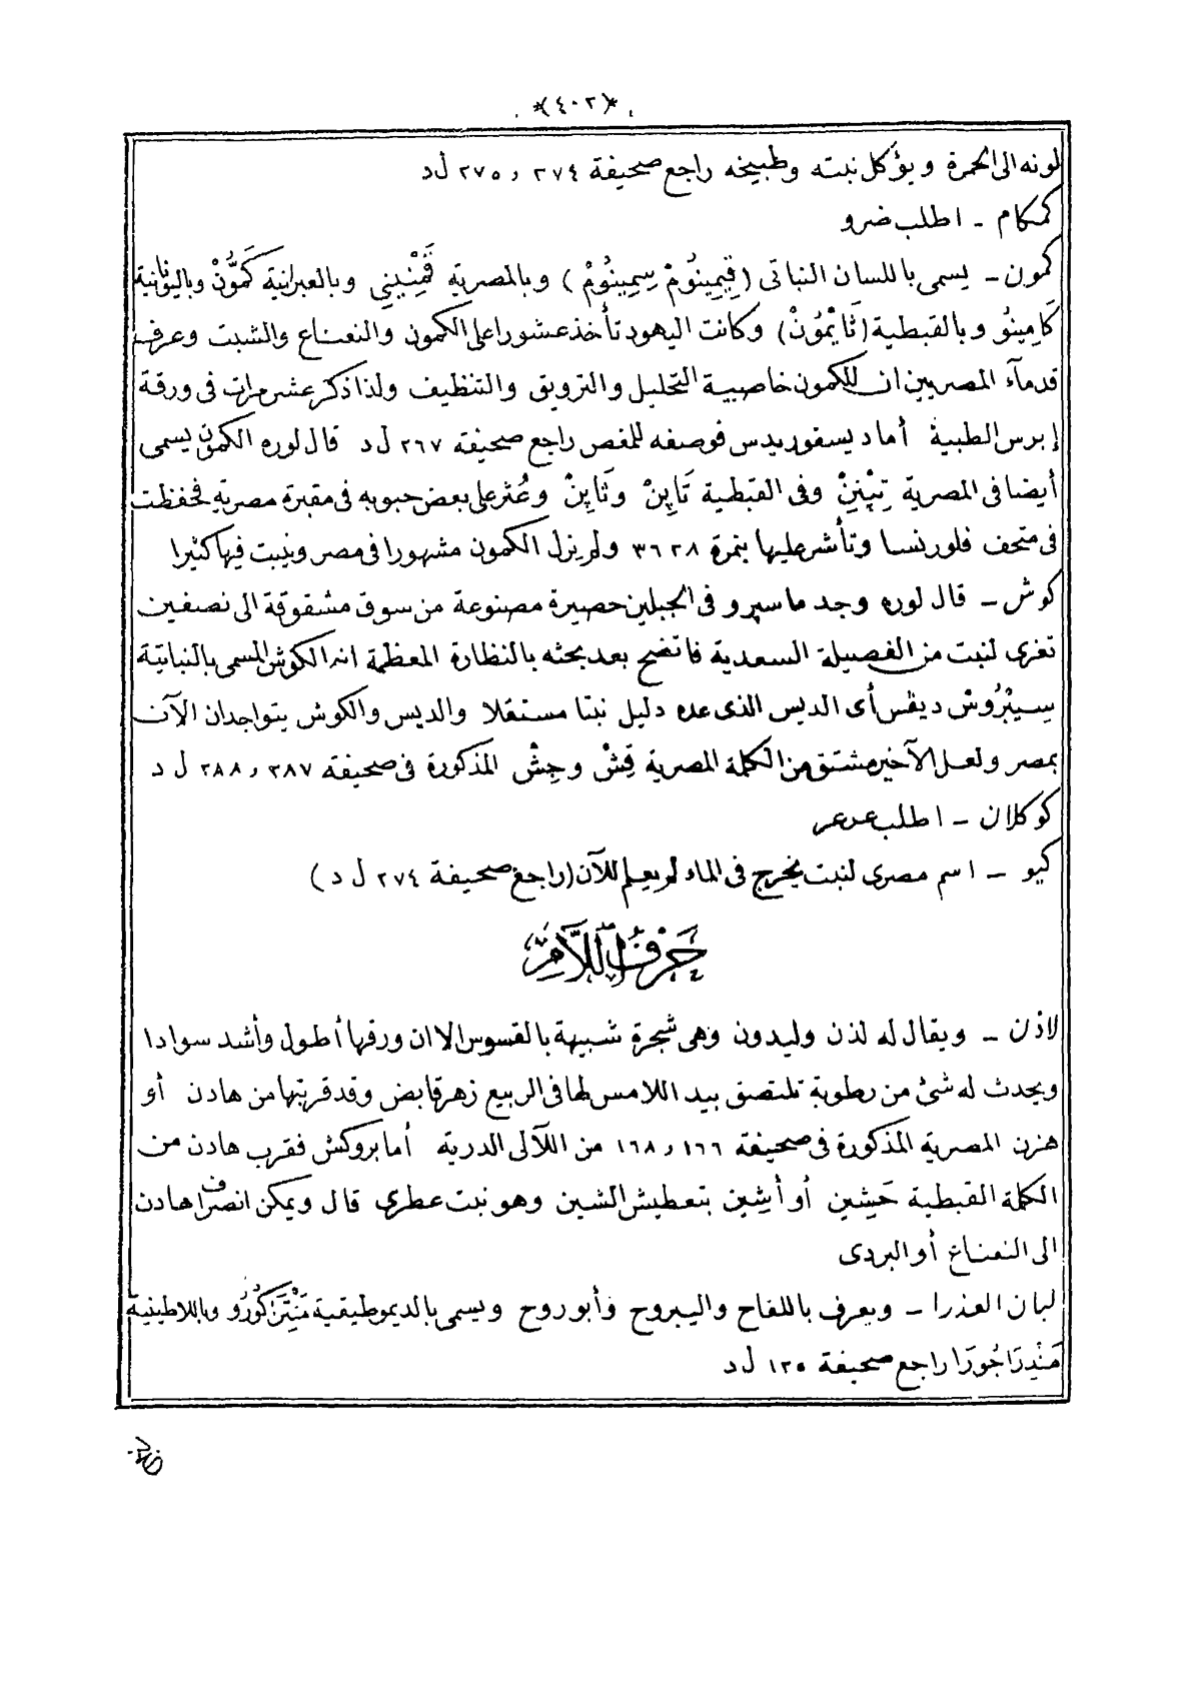 *(٤٠٢)*
لونه الى الحمرة ويؤكل نبته وطبيخه راجع صحيفة ٢٧٤ و ٢٧٥ ل د
كمكام ـ اطلب ضرو
كمون ـ يسمى باللسان النباتى (قِيمِينُومْ سِمِينُومْ) وبالمصرية قَمْنِينِي وبالعبرانية كَمُّونْ وباليونانية
كَامِينُو وبالقبطية (تَابْمُونْ) وكانت اليهود تأخذ عشورا على الكمون والنعناع والشبت وعرف
قدمآء المصريين ان للكمون خاصية التحليل والترويق والتنظيف ولذا ذكر عشر مرات فى ورقة
إبرس الطبية أما ديسقوريدس فوصفه للمغص راجع صحيفة ٢٦٧ ل د قال لوره الكمون يسمى
أيضا فى المصرية تِپْنِنْ وفى القبطية تَاپِنْ وثَاپِنْ وعُثر على بعض حبوبه فى مقبرة مصرية فحفظت
فى متحف فلورنسا وتأشر عليها بنمرة ٣٦٢٨ ولم يزل الكمون مشهورا فى مصر وينبت فيها كثيرا
كوش ـ قال لوره وجد ماسپرو فى الجبلين حصيرة مصنوعة من سوق مشقوقة الى نصفين
تعزى لنبت من الفصيلة السعدية فاتضح بعد بحثه بالنظارة المعظمة انه الكوش المسمى بالنباتية
سِيپْرُوسْ ديڤس أى الديس الذى عده دليل نبتا مستقلا والديس والكوش يتواجدان الآن
بمصر ولعل الآخير مشتق من الكلمة المصرية قِشْ وجِشْ المذكورة فى صحيفة ٢٨٧ و ٢٨٨ ل د
كوكلان ـ اطلب عرعر
كيو ـ اسم مصرى لنبت يخرج فى الماء لم يعلم للآن (راجع صحيفة ٢٧٤ ل د)
حَرْفُ اللَّامِ
لاذن ـ ويقال له لذن وليدون وهى شجرة شبيهة بالقسوس الا ان ورقها أطول وأشد سوادا
ويحدث له شئ من رطوبة تلتصق بيد اللامس لها فى الربيع زهر قابض وقد قربتها من هادن أو
هزن المصرية المذكورة فى صحيفة ١٦٦ و ١٦٨ من اللآلى الدرية أما بروكش فقرب هادن من
الكلمة القبطية حَشِين أو أشِين بتعطيش الشين وهو نبت عطرى قال ويمكن انصراف هادن
الى النعناع أو البردى
لبان العذرا ـ ويعرف باللفاح واليبروح وأبو روح ويسمى بالديموطيقية مَنْتِرَاكُورُو وباللاطينية
مَنْدِرَاجُورَا راجع صحيفة ١٣٥ ل د